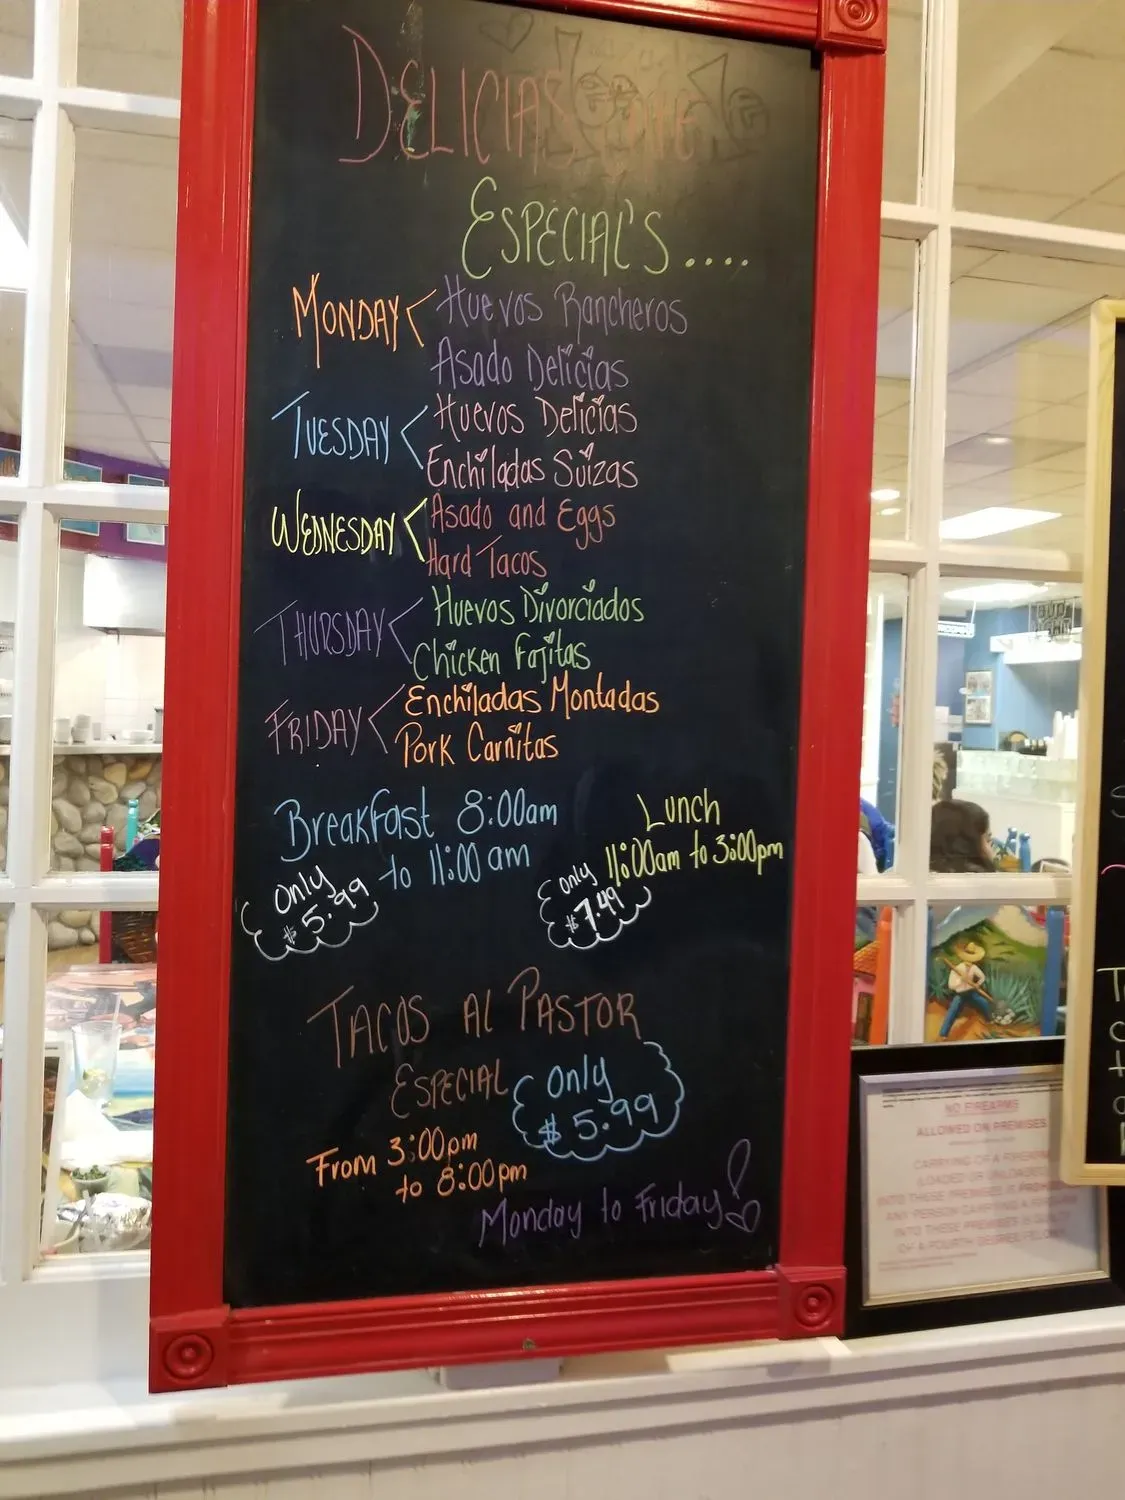 DELICIAS CAFE
ESPECIAL'S....
MONDAY < Huevos Rancheros
Asado Delicias
TUESDAY < Huevos Delicias
Enchiladas Suizas
WEDNESDAY < Asado and Eggs
Hard Tacos
THURSDAY < Huevos Divorciados
Chicken Fajitas
FRIDAY < Enchiladas Montadas
Pork Carnitas
Breakfast 8:00am
to 11:00 am
only
$5.99
Lunch
11:00am to 3:00pm
only
$7.49
TACOS Al PASTOR
ESPECIAL
only
$5.99
From 3:00pm
to 8:00pm
Monday to Friday!
NO FIREARMS
ALLOWED ON PREMISES
CARRYING OF A FIREARM
LOADED OR UNLOADED
INTO THESE PREMISES IS
ANY PERSON CARRYING A
INTO THESE PREMISES IS
OF A FOURTH DEGREE FELONY